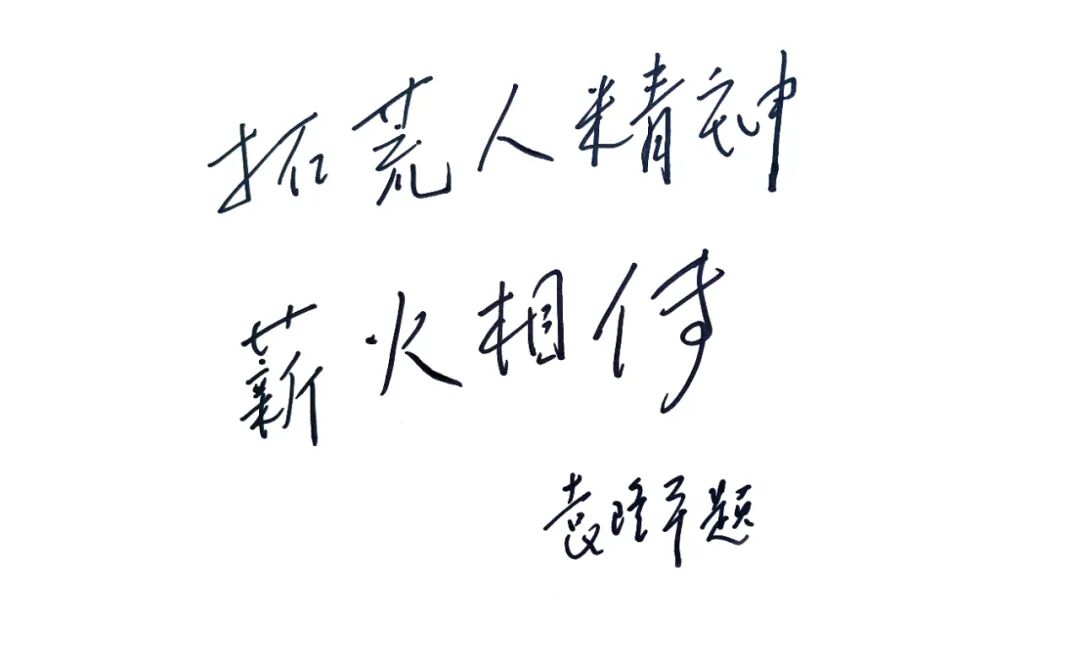 拓荒人精神
薪火相传
袁隆平题